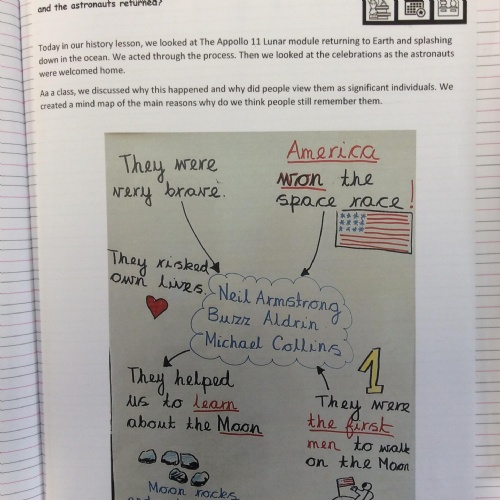 and the astronauts returned?
Today in our history lesson, we looked at The Appollo 11 Lunar module returning to Earth and splashing
down in the ocean. We acted through the process. Then we looked at the celebrations as the astronauts
were welcomed home.
Aa a class, we discussed why this happened and why did people view them as significant individuals. We
created a mind map of the main reasons why do we think people still remember them.
They were
very brave.
America
won the
space race!
They risked
own lives.
Neil Armstrong
Buzz Aldrin
Michael Collins
They helped
us to learn
about the Moon
1
They were
the first
men to walk
on the Moon
Moon rocks